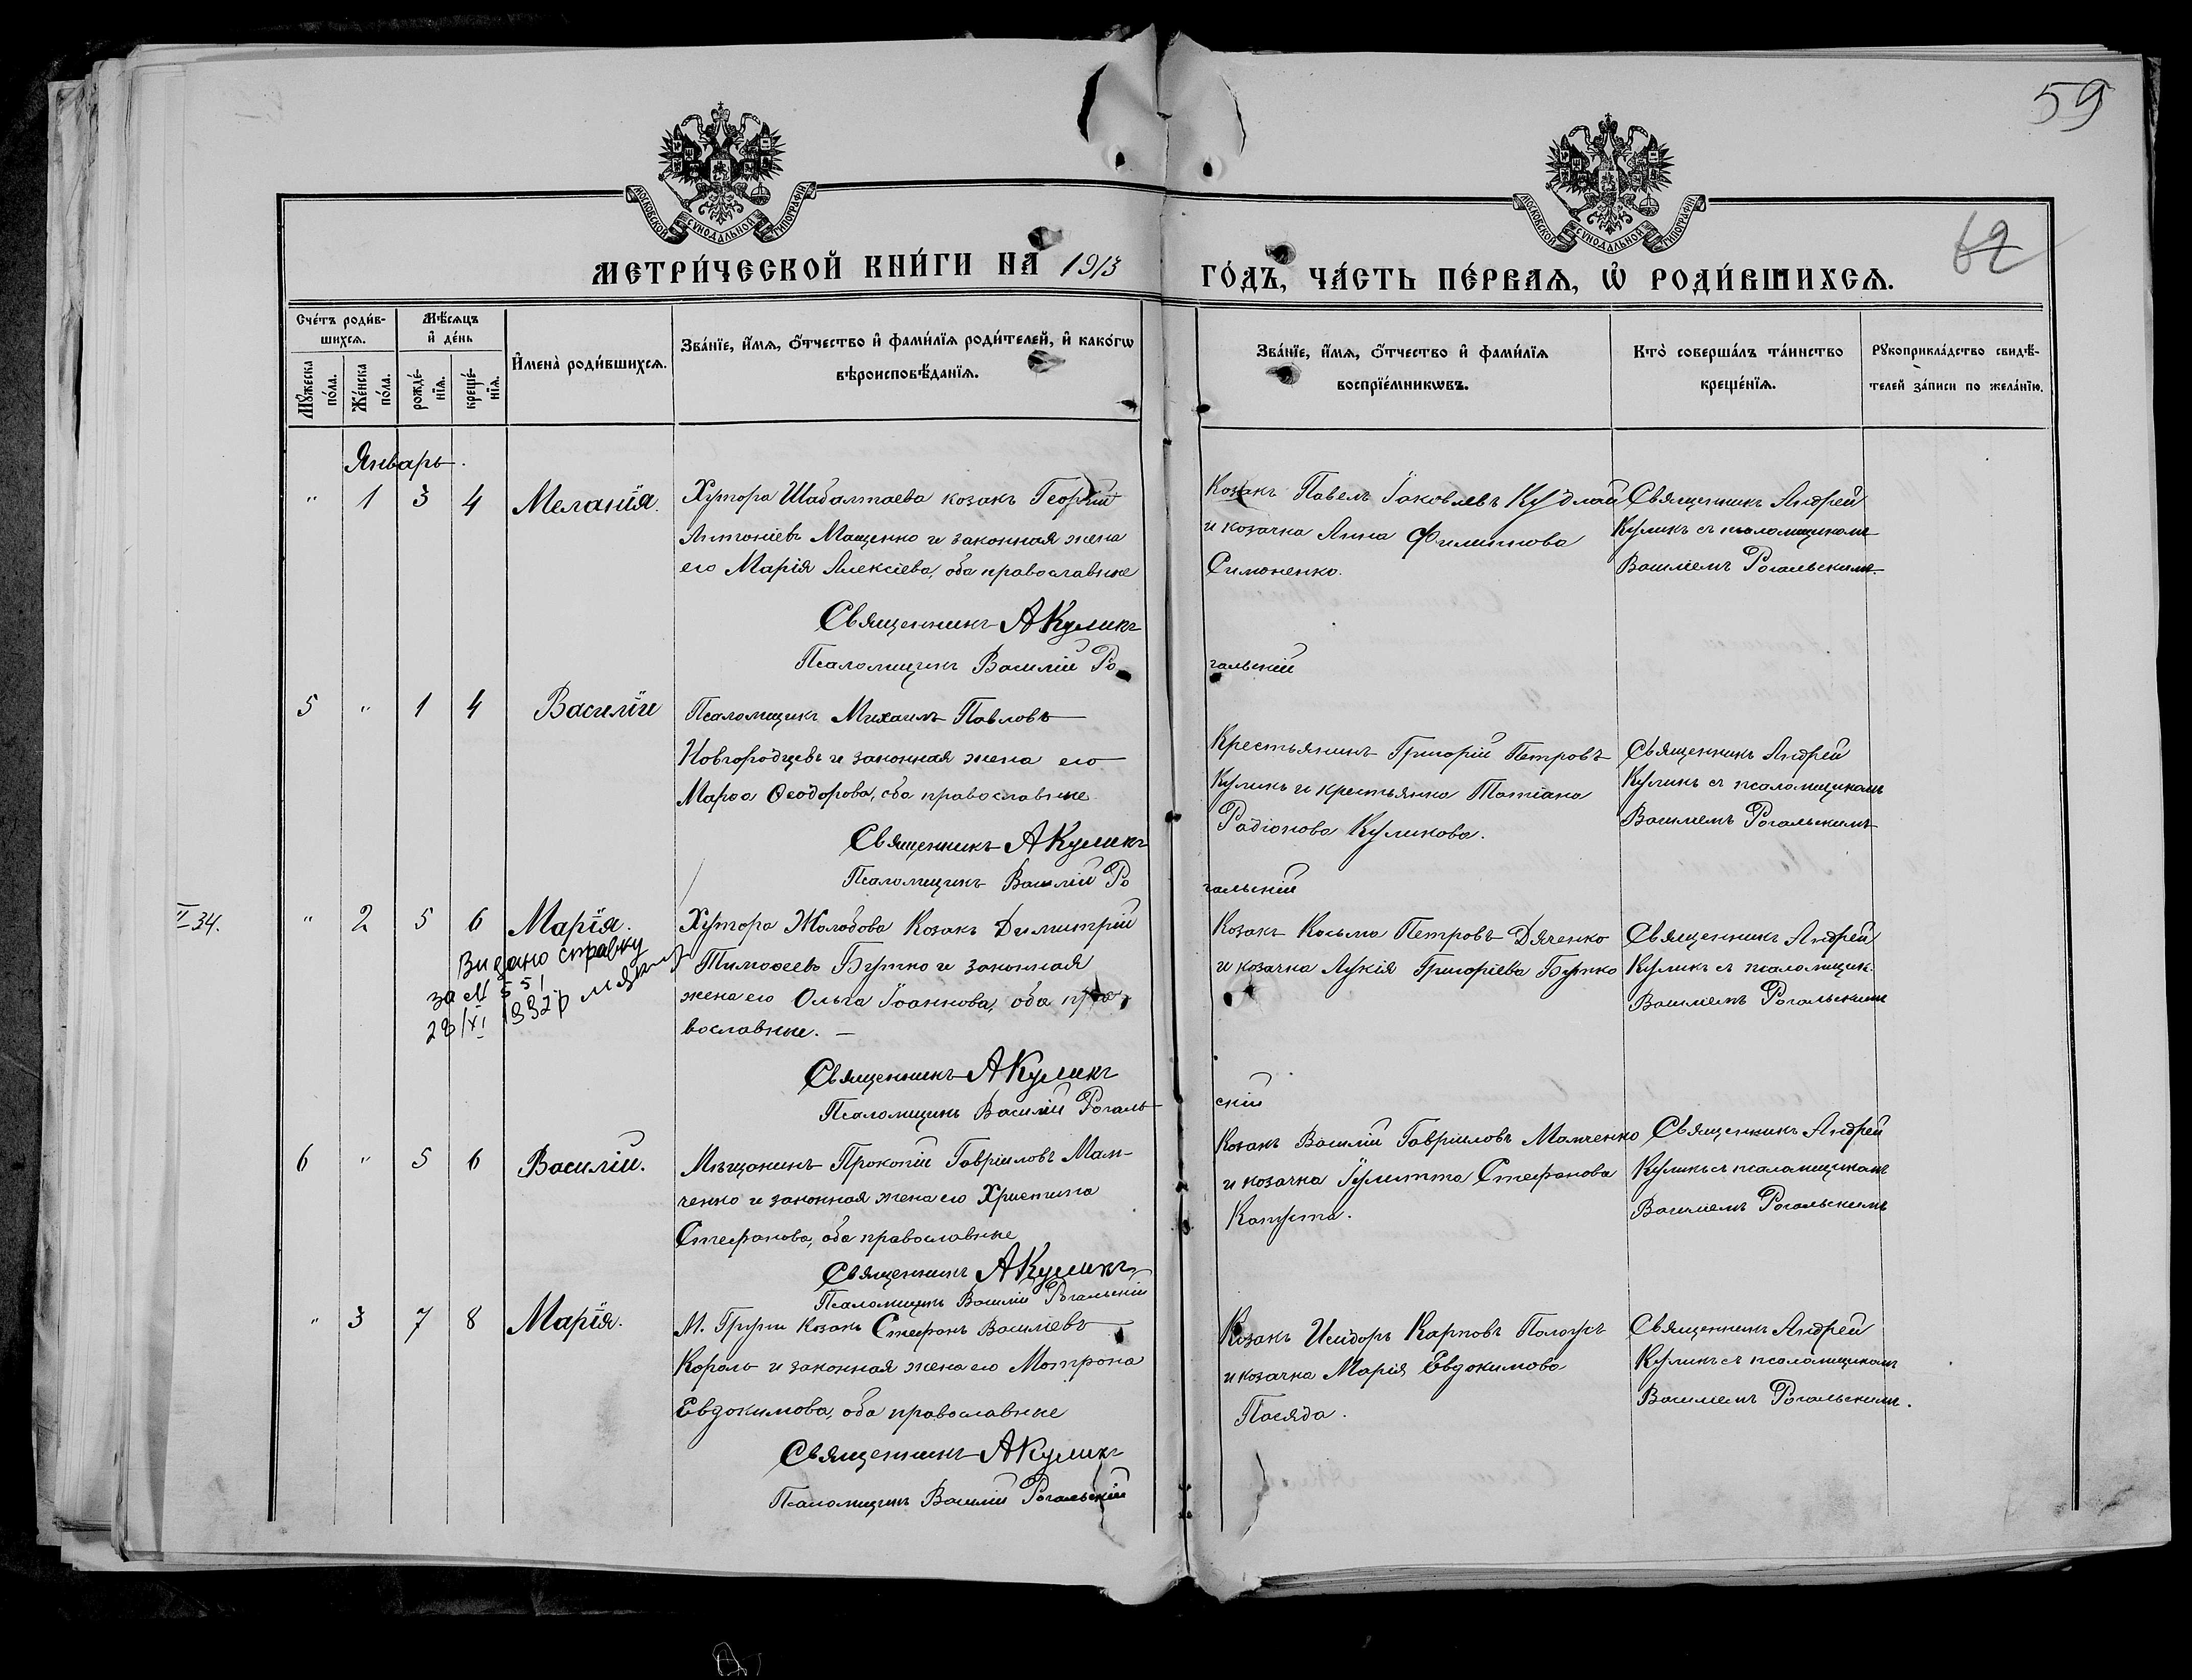 59
62
МОСКОВСКОЙ СѴНОДАЛЬНОЙ ТИПОГРАФІИ
МОСКОВСКОЙ СѴНОДАЛЬНОЙ ТИПОГРАФІИ
МЕТРИ́ЧЕСКОЙ КНИ́ГИ НА 1913
ГО́ДЪ, ЧА́СТЬ ПЕ́РВАѦ, Ѡ҆ РОДИ́ВШИХСѦ.
Сче́тъ роди́в-
шихсѧ.
Мꙋ́жеска по́ла.
Же́нска по́ла.
Мѣ́сѧцъ и҆ де́нь
рожде́-нїѧ.
креще́-нїѧ.
И҆мена̀ роди́вшихсѧ.
Зва́нїе, и҆́мѧ, ѻ҆́тчество и҆ фами́лїѧ роди́телей, и҆ како́гѡ
вѣроисповѣ́данїѧ.
Зва́нїе, и҆́мѧ, ѻ҆́тчество и҆ фами́лїѧ
воспрїе́мникѡвъ.
Кто̀ соверша́лъ та́инство
креще́нїѧ.
Рꙋкоприкла́дство свидѣ́-
телей за́писи по жела́нїю.
Январь.
" 1 3 4 Меланія.
Хутора Шабалтаева козакъ Георгій
Антоніевъ Мащенко и законная жена
его Марія Алексіева, оба православные
Священникъ А Куликъ
Псаломщикъ Василій Ро
гальскій
Козакъ Павелъ Іаковлевъ Кудлай
и козачка Анна Филиппова
Симоненко.
Священникъ Андрей
Куликъ съ псаломщикомъ
Василіемъ Рогальскимъ.
5 " 1 4 Василій
Псаломщикъ Михаилъ Павловъ
Новгородцевъ и законная жена его
Марѳа Ѳеодорова, оба православные
Священникъ А Куликъ
Псаломщикъ Василій Ро
гальскій
Крестьянинъ Григорій Петровъ
Куликъ и крестьянка Татіана
Радіонова Куликова.
Священникъ Андрей
Куликъ съ псаломщикомъ
Василіемъ Рогальскимъ
II 34.
" 2 5 6 Марія.
Видано справку
за № 551
28/XI 1932р
Хутора Жолобова Козакъ Димитрій
Тимоѳеевъ Бутко и законная
жена его Ольга Іоаннова, оба пра
вославные.
Священникъ А Куликъ
Псаломщикъ Василій Рогаль
скій
Козакъ Косьма Петровъ Дяченко
и козачка Лукія Григоріева Бутко
Священникъ Андрей
Куликъ съ псаломщик.
Василіемъ Рогальскимъ
6 " 5 6 Василій.
Мѣщанинъ Прокопій Гавріиловъ Мам-
ченко и законная жена его Христина
Стефанова, оба православные
Священникъ А Куликъ
Псаломщикъ Василій Рогальскій
Козакъ Василій Гавріиловъ Мамченко
и козачка Іулитта Стефанова
Капуста.
Священникъ Андрей
Куликъ съ псаломщикомъ
Василіемъ Рогальскимъ
" 3 7 8 Марія.
М. Груни Козакъ Стефанъ Василіевъ
Король и законная жена его Мотрона
Евдокимова, оба православные
Священникъ А Куликъ
Псаломщикъ Василій Рогальскій
Козакъ Исидоръ Карповъ Пологъ
и козачка Марія Евдокимова
Посяда.
Священникъ Андрей
Куликъ съ псаломщикомъ
Василіемъ Рогальскимъ.